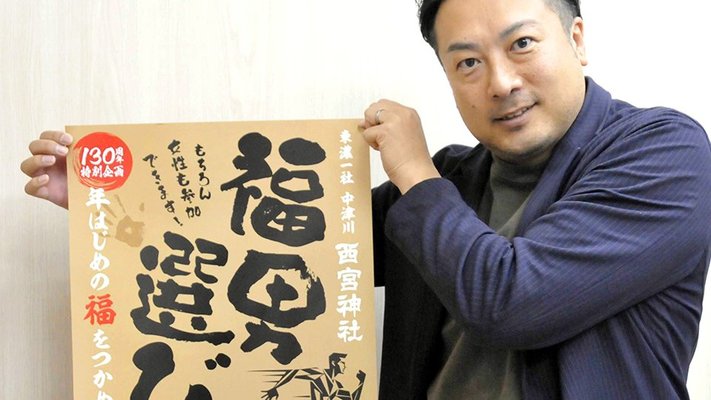 東濃一社 中津川 西宮神社
福男
選び
もちろん
女性も参加
できます！
130周年
特別企画
年はじめの福をつかめ